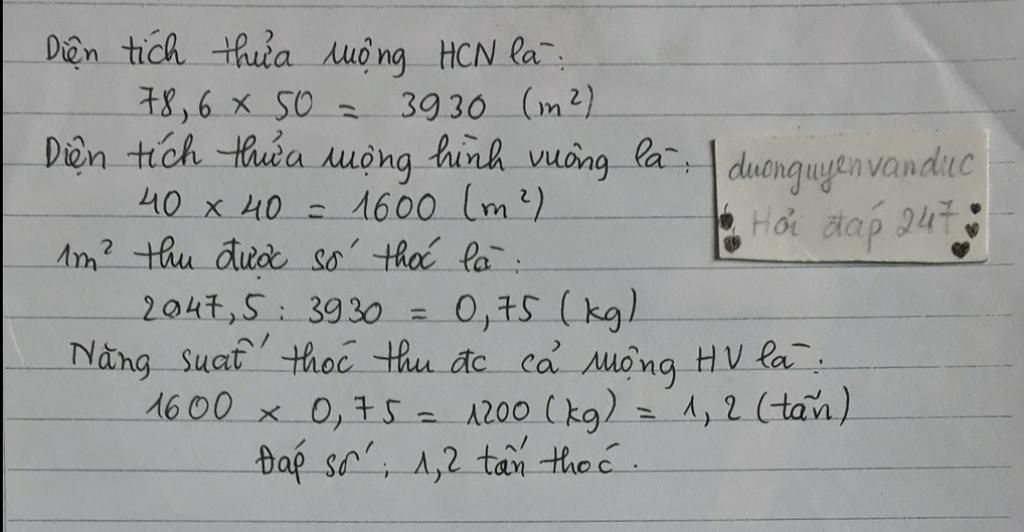 Diện tích thửa ruộng HCN là:
78,6 × 50 = 3930 (m²)
Diện tích thửa ruộng hình vuông là:
40 × 40 = 1600 (m²)
1m² thu được số thóc là:
2947,5 : 3930 = 0,75 (kg)
Năng suất thóc thu đc cả ruộng HV là:
1600 × 0,75 = 1200 (kg) = 1,2 (tấn)
Đáp số: 1,2 tấn thóc.
duonguyenvanduc
Hỏi đáp 247